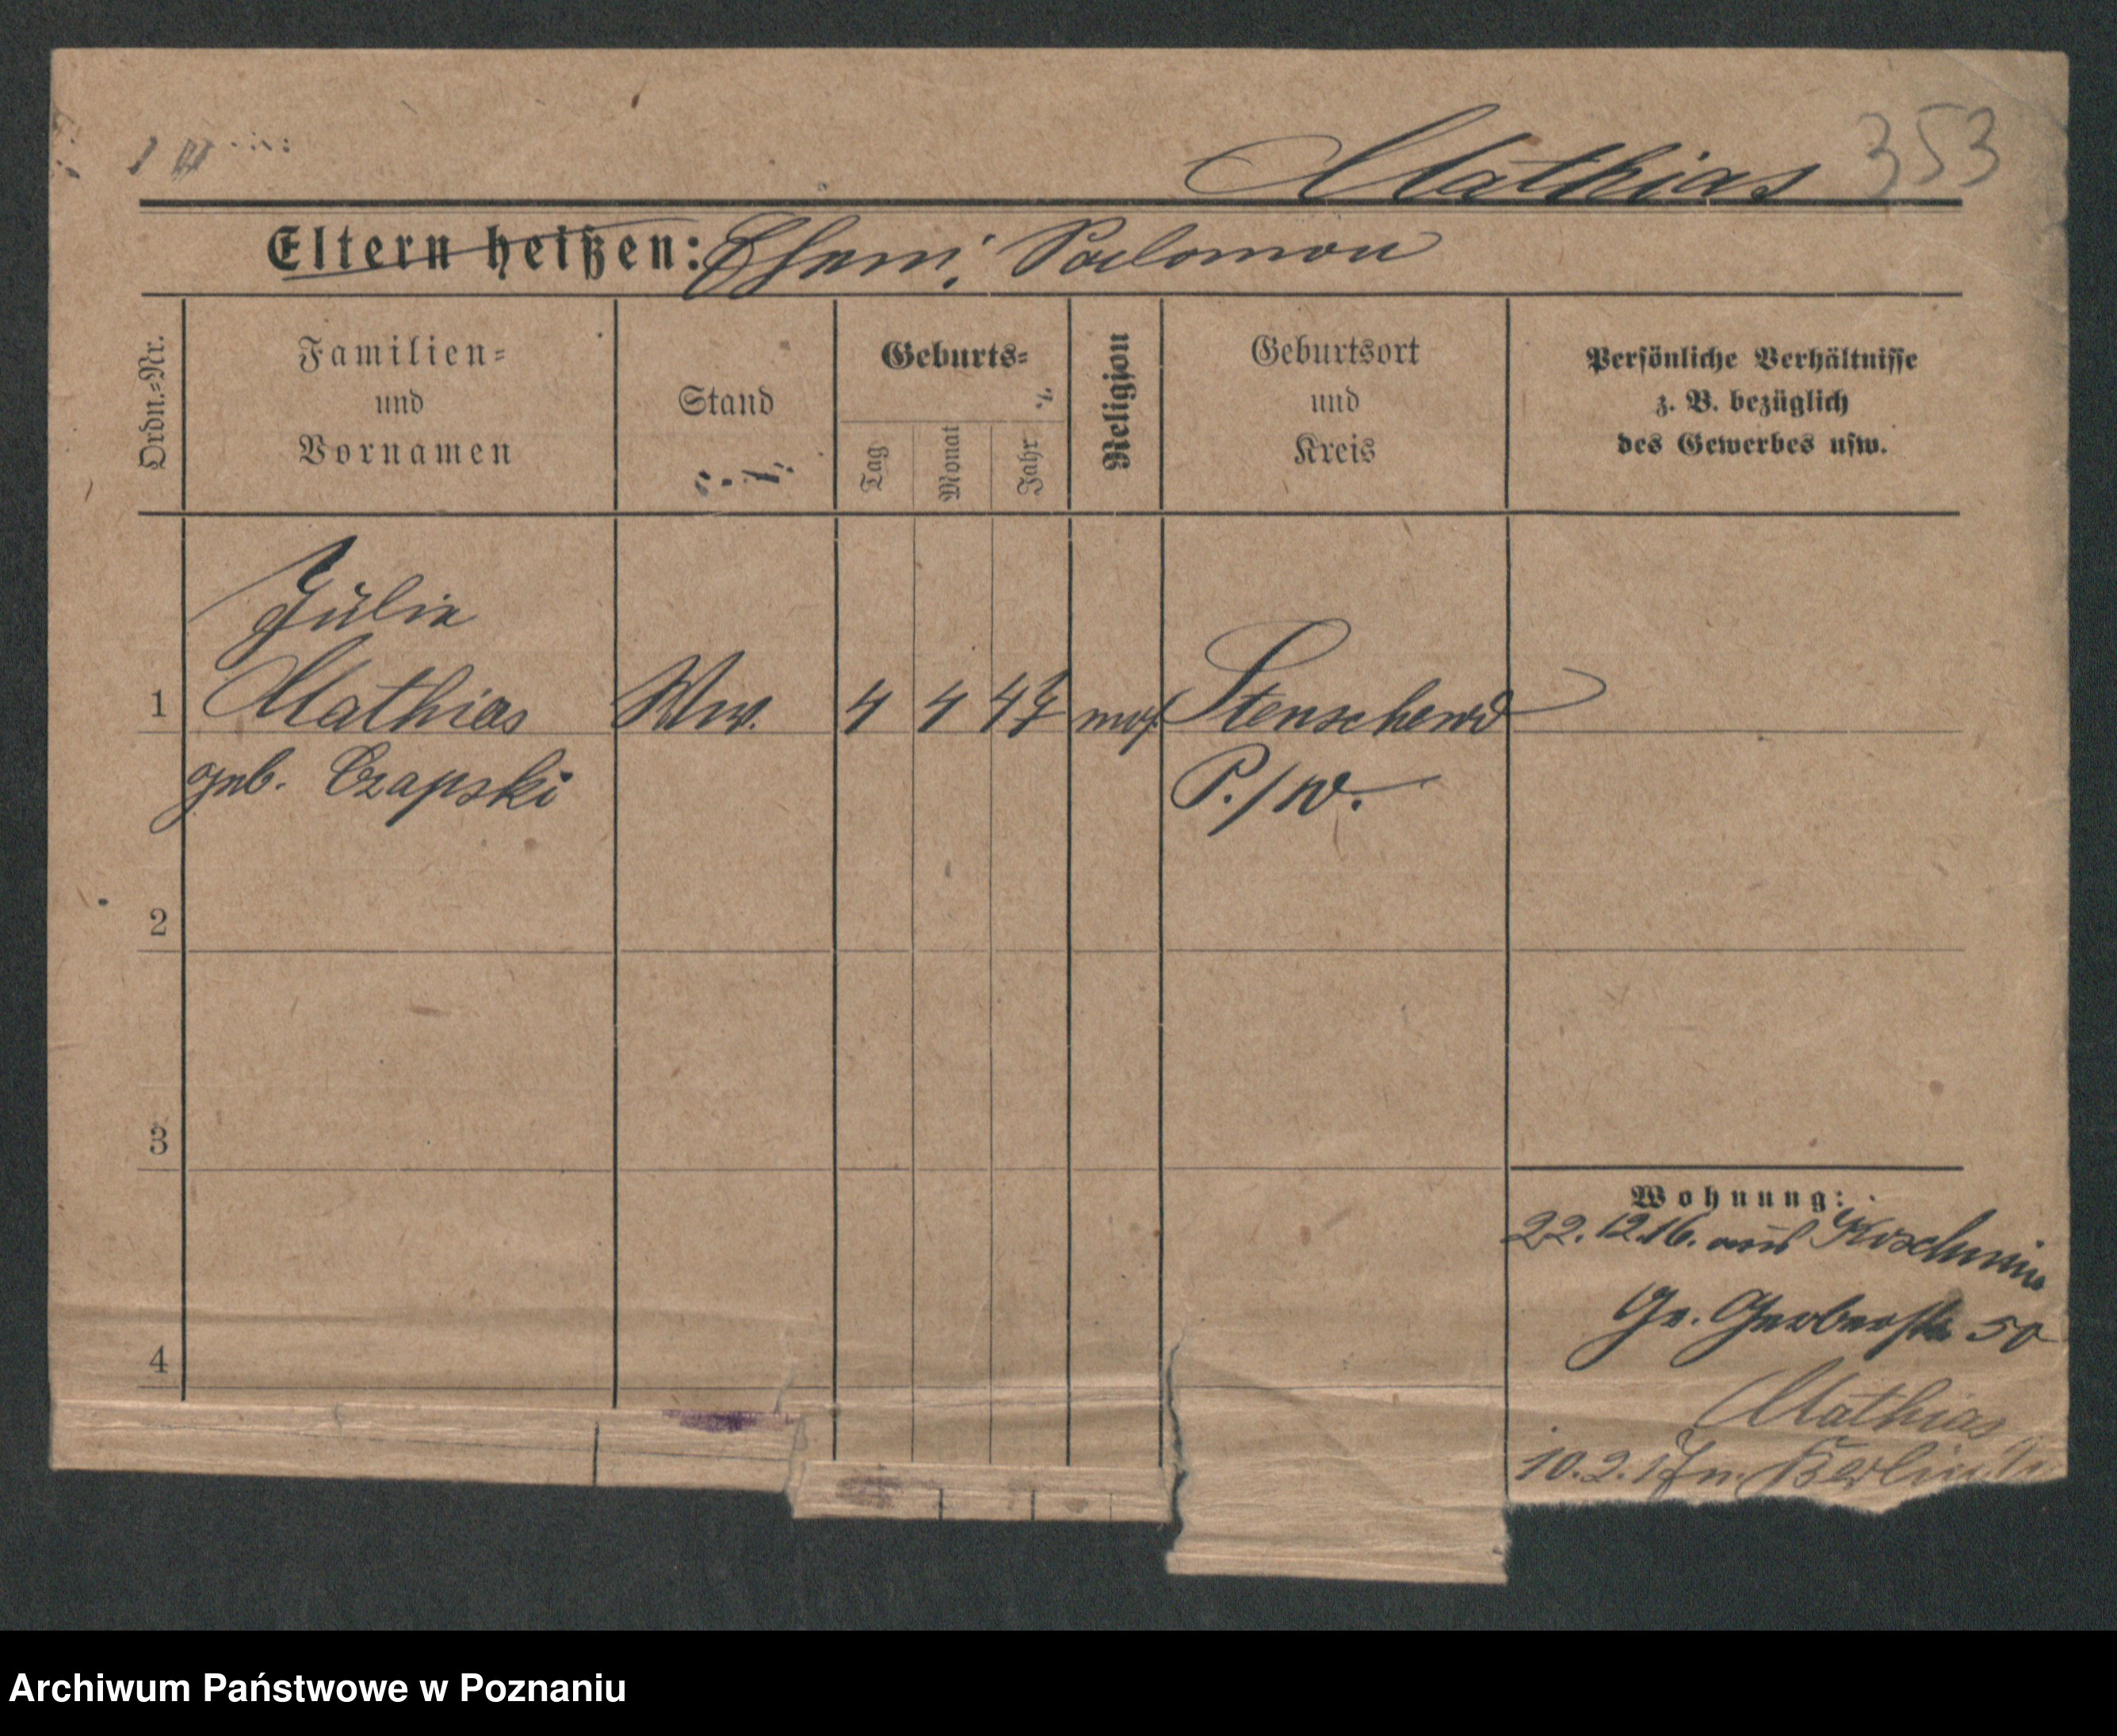 Mathias 353
Eltern heißen: Ehem. Salomon
Ordn.-Nr.
Familien-
und
Vornamen
Stand
Geburts-
Tag
Monat
Jahr
Religion
Geburtsort
und
Kreis
Persönliche Verhältnisse
z. B. bezüglich
des Gewerbes usw.
Julie
1 Mathias Ww. 4 4 47 mos. Stenschewo
geb. Czapski P./W.
2
3
4
Wohnung:
22.12.16. aus Koschmin
Gr. Gerberstr 50
Mathias
10.2.17 n. Berlin
Archiwum Państwowe w Poznaniu